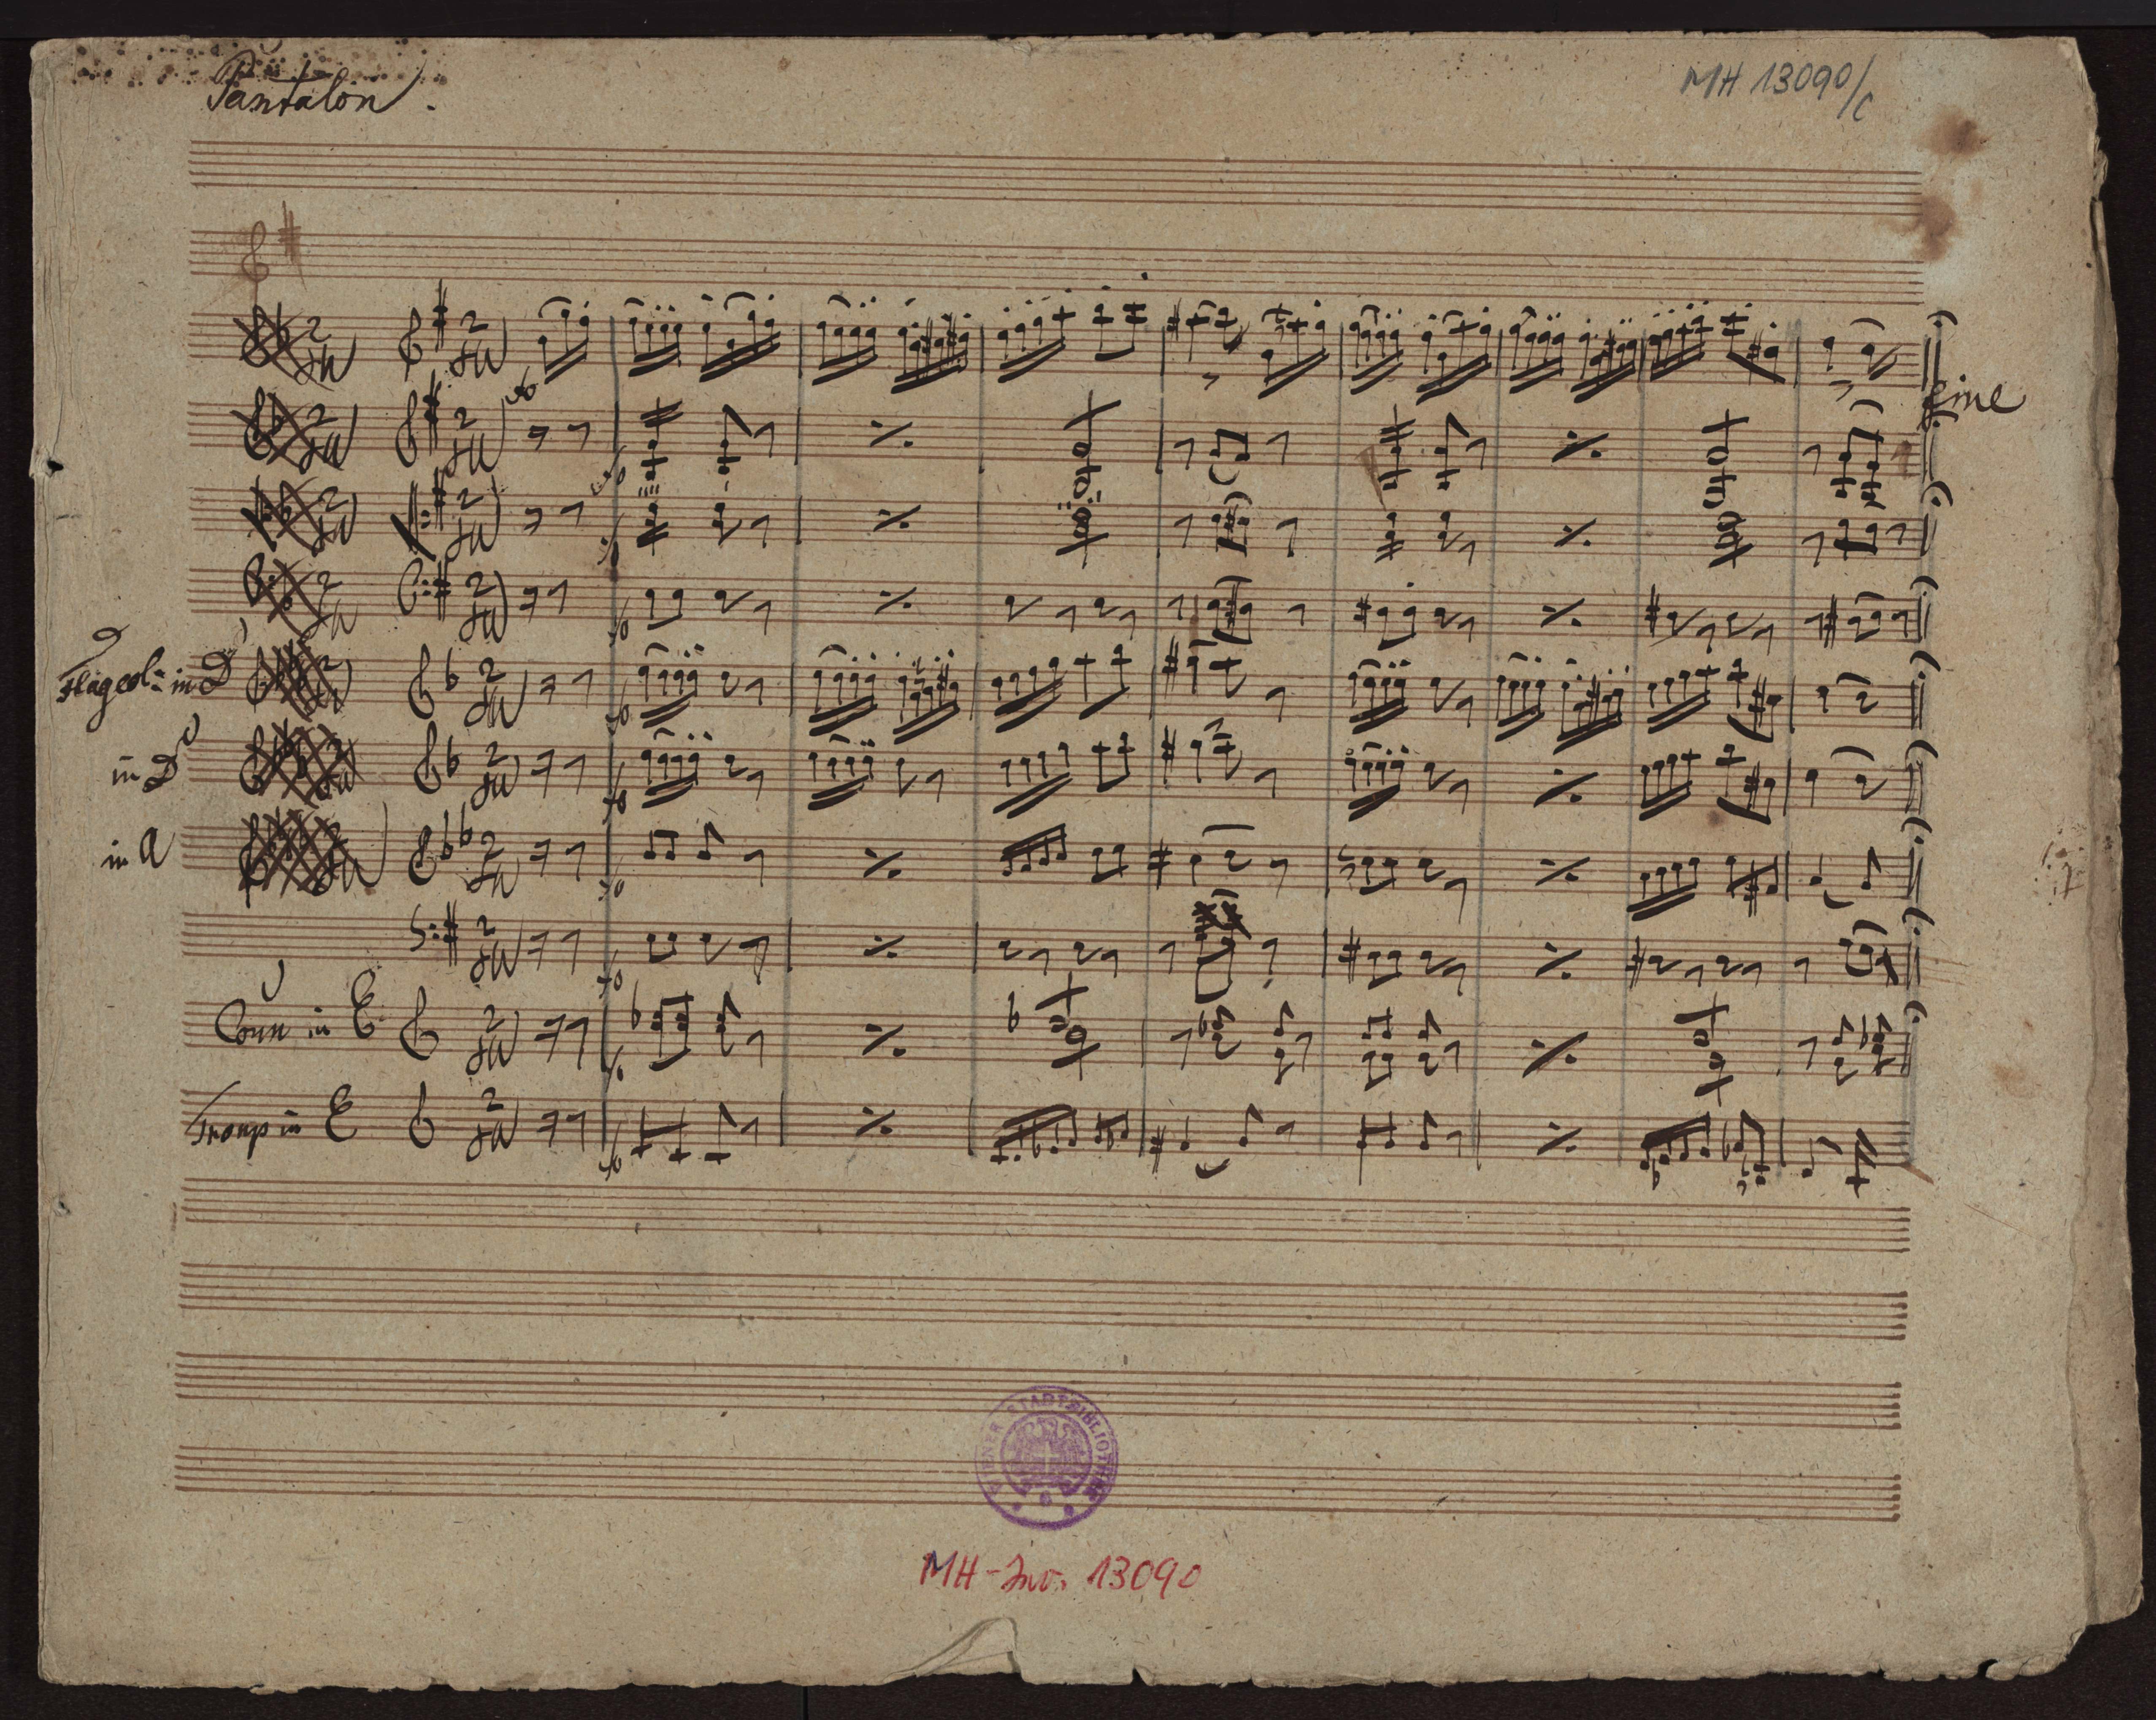 Pantalon.
MH 13090/C
fine
Flageol: in D
in D
in A
Corn in E
Tromp in E
WIENER STADTBIBLIOTHEK
MH-Inv. 13090